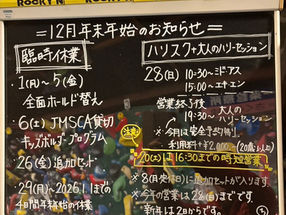 =12月年末年始のお知らせ=
臨時休業
・1(月)～5(金)
全面ホールド替え
・6(土)JMSCA貸切
キッズボルダープログラム
・26(金)追加セット
・29(月)～2026.1.1まで
4日間年末年始の休業
ハリスワ+大人のハリーセッション
28(日) 10:30～ミドアス
15:00～エキエン
営業終了後
19:30～大人のハリーセッション
※今月は完全予約制!
利用料+¥2,000-(20歳以上)
注意
20(土)は16:30までの時短営業
※8(月)(定休日)に追加セットが入ります。
※今年の営業は28(日)までです。
新年は2日からです。